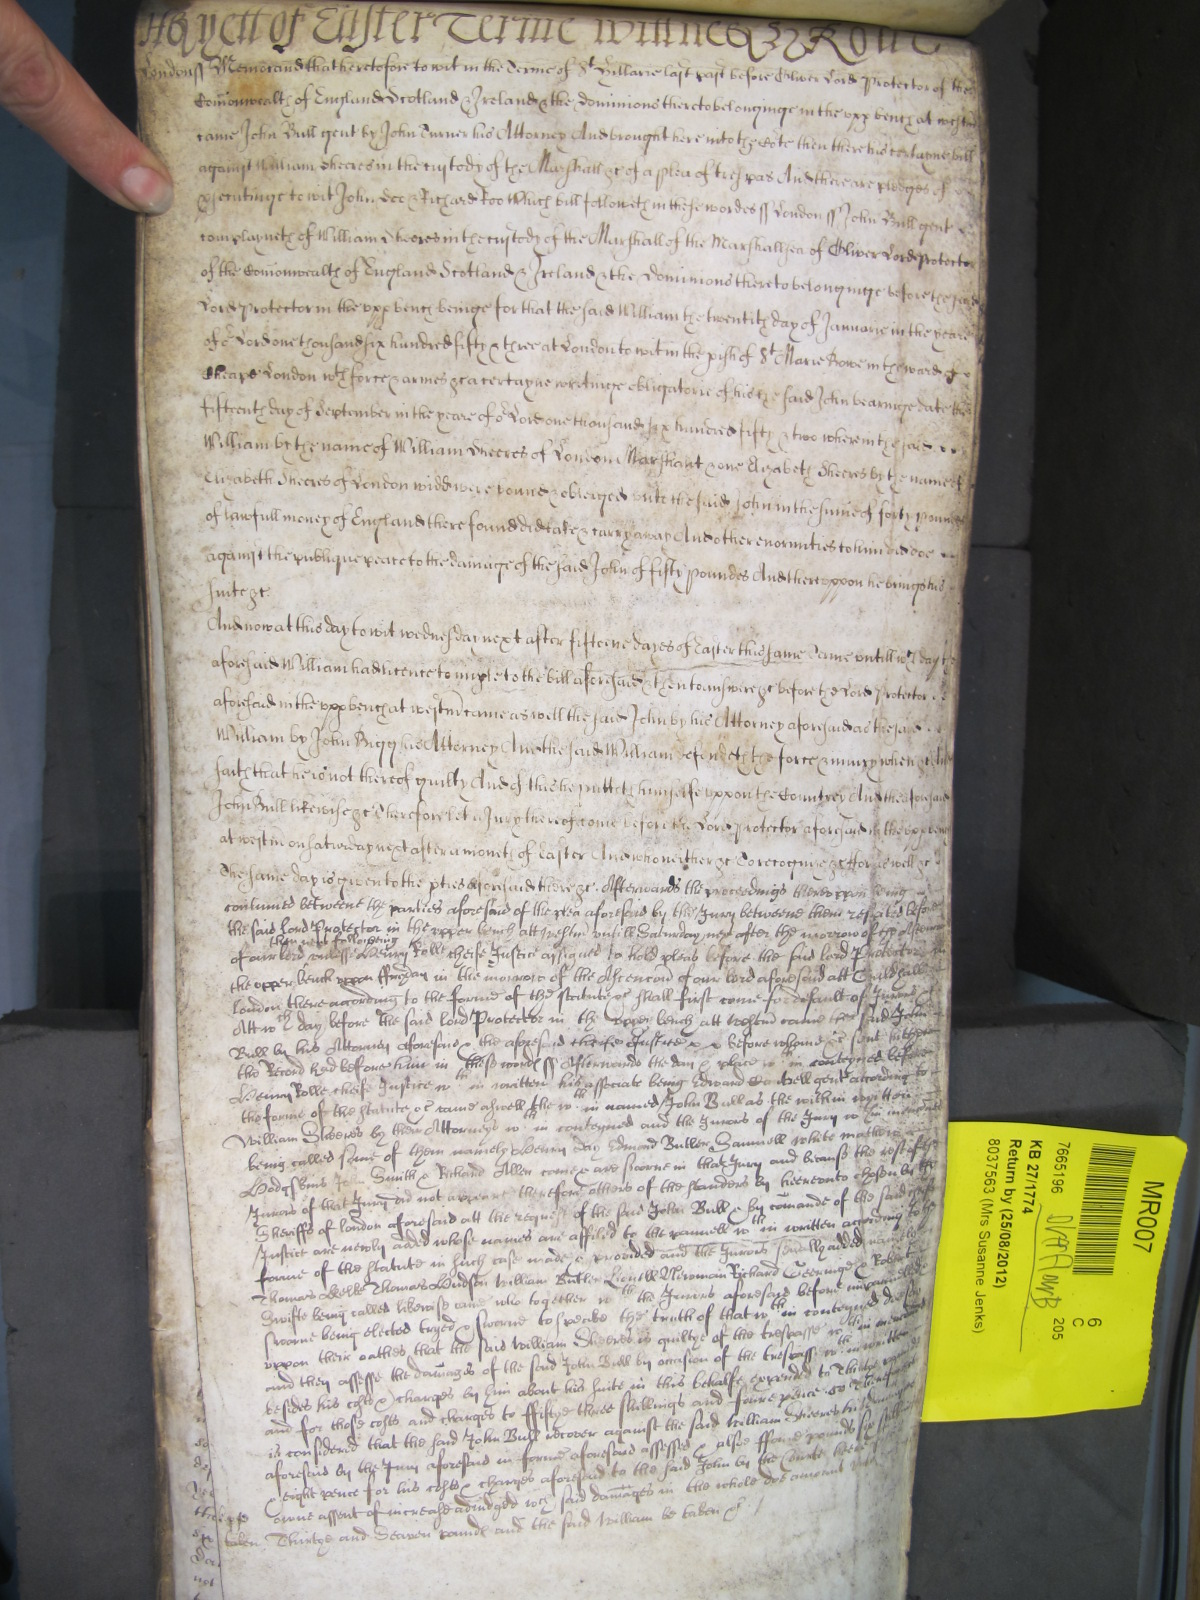 As yett of Easter Terme Wittnes H Rolle
London ss Memorand that heretofore to wit in the Terme of St Hillarie last past before Oliver Lord Protector of the
Comonwealth of England Scotland & Ireland & the dominions thereto belonginge in the upp bench at westm
came John Bull gent by John Turner his Attorney And brought here into the Cote then there his certayne bill
against William Sheeres in the custody of the Marshall &c of a plea of trespas And there are pledges of
psecutinge to wit John Doe & Richard Roo Which bill followeth in these wordes ss London ss John Bull gent
complayneth of William Sheeres in the custody of the Marshall of the Marshallsea of Oliver Lord Protector
of the Comonwealth of England Scotland & Ireland & the Dominions thereto belonginge before the said
Lord Protector in the upp bench beinge for that the said William the twentith day of Januarie in the yeare
of or Lord one thousand six hundred fifty & three at London to wit in the pish of St Marie Bowe in the ward of
Cheape London wth force & armes &c a certayne writinge obligatorie of his the said John bearinge date the
fifteenth day of September in the yeare of or Lord one thousand six hundred fifty & two wherein the said
William by the name of William Sheeres of London Marchant & one Elizabeth Sheeres by the name of
Elizabeth Sheeres of London widd were bound & obleiged unto the said John in the sume of forty pounds
of lawfull money of England there found did take & carry away And other enormities to him did doe
against the publique peace to the damage of the said John of fifty poundes And thereuppon he brings his
suite &c
And now at this day to wit wednesday next after fifteene dayes of Easter this same Terme untill wch day the
aforesaid William had licence to imple to the bill aforesaid & then to answere &c before the Lord Protector
aforesaid in the upp bench at westm came as well the said John by his Attorney aforesaid as the said
William by John Bigg his Attorney And the said William defendeth the force & iniury when &c And
saith that he is not thereof guilty And of this he putteth himselfe uppon the Countrey And the aforesaid
John Bull likewise &c Therefore let a Jury thereof come before the Lord Protector aforesaid in the upp bench
at westm on saturday next after a moneth of Easter And who neither &c To recognize &c For as well &c
The same day is given to the pties aforesaid there &c. Afterwards the proceedings thereuppon being
continued betweene the parties aforesaid of the plea aforesaid by the Jury betweene them respited before
the said Lord Protector in the upper bench att westm untill Saturday next after the morrow of the Ascencon
of our lord then next following unlesse Henry Rolle cheife Justice assigned to hold pleas before the said lord Protector in
the upper bench uppon ffryday in the morrow of the Ascencon of our lord aforesaid att Guildhall
London there according to the forme of the statute &c shall first come for default of Jurors &c
Att wch day before the said lord Protector in the upper bench att westm came the said John
Bull by his Attorney aforesaid & the aforesaid cheife Justice &c before whome &c sent hither
the Record had before him in these words ss Afterwards the day & place wth in conteyned before
Henry Rolle cheife Justice wth in written his associate being Edward Cantrell gent according to
the forme of the statute &c came aswell the wth in named John Bull as the within written
William Sheeres by their Attorneys wth in conteyned and the Jurors of the Jury wth in mencond
being called some of them namely Henry Day Edmond Butler Samuell White Mathew
Hodgskins John Smith & Richard Allen come & are sworne in that Jury and because the rest of the
Jurors of that Jury did not appeare therefore others of the standers by hereunto chosen by the
Sheriffs of london aforesaid att the request of the said John Bull & by comande of the said cheife
Justice are newly added whose names are affiled to the pannell wth in written according to the
forme of the statute in such case made & provided and the Jurors soe newly added namely
Thomas Thomas Hudson William Butler Lionell Newman Richard Geeringe & Robert
Swifte being called likewise came who together wth the Jurors aforesaid before impannelled
sworne being elected tryed & sworne to speake the truth of that wth in conteyned doe say
uppon their oathes that the said William Sheeres is guiltye of the trespasse wth in mencond
and then assesse the damages of the said John Bull by occasion of the trespasse wth in written
besides his costs & charges by him about his suite in this behalfe expended to Thirtie pounds
and for those costs and charges to ffiftye three shillings and foure pence Therefore it
is considered that the said John Bull recover against the said William Sheeres his damages
aforesaid by the Jury aforesaid in forme aforesaid assessed & alsoe ffoure pounds six shillings
& eight pence for his costs & charges aforesaid to the said John by the Courte here
owne assent of increase adiudged wch said damages in the whole doe amount unto
Thirtye and Seaven pounds and the said William be taken &c
MR007
6
C
7665196
205
KB 27/1774
Return by (25/08/2012)
8037563 (Mrs Susanne Jenks)